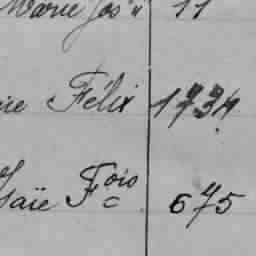 Marie Jos " 11
ie Félix 1734
Isaïe Fois 675